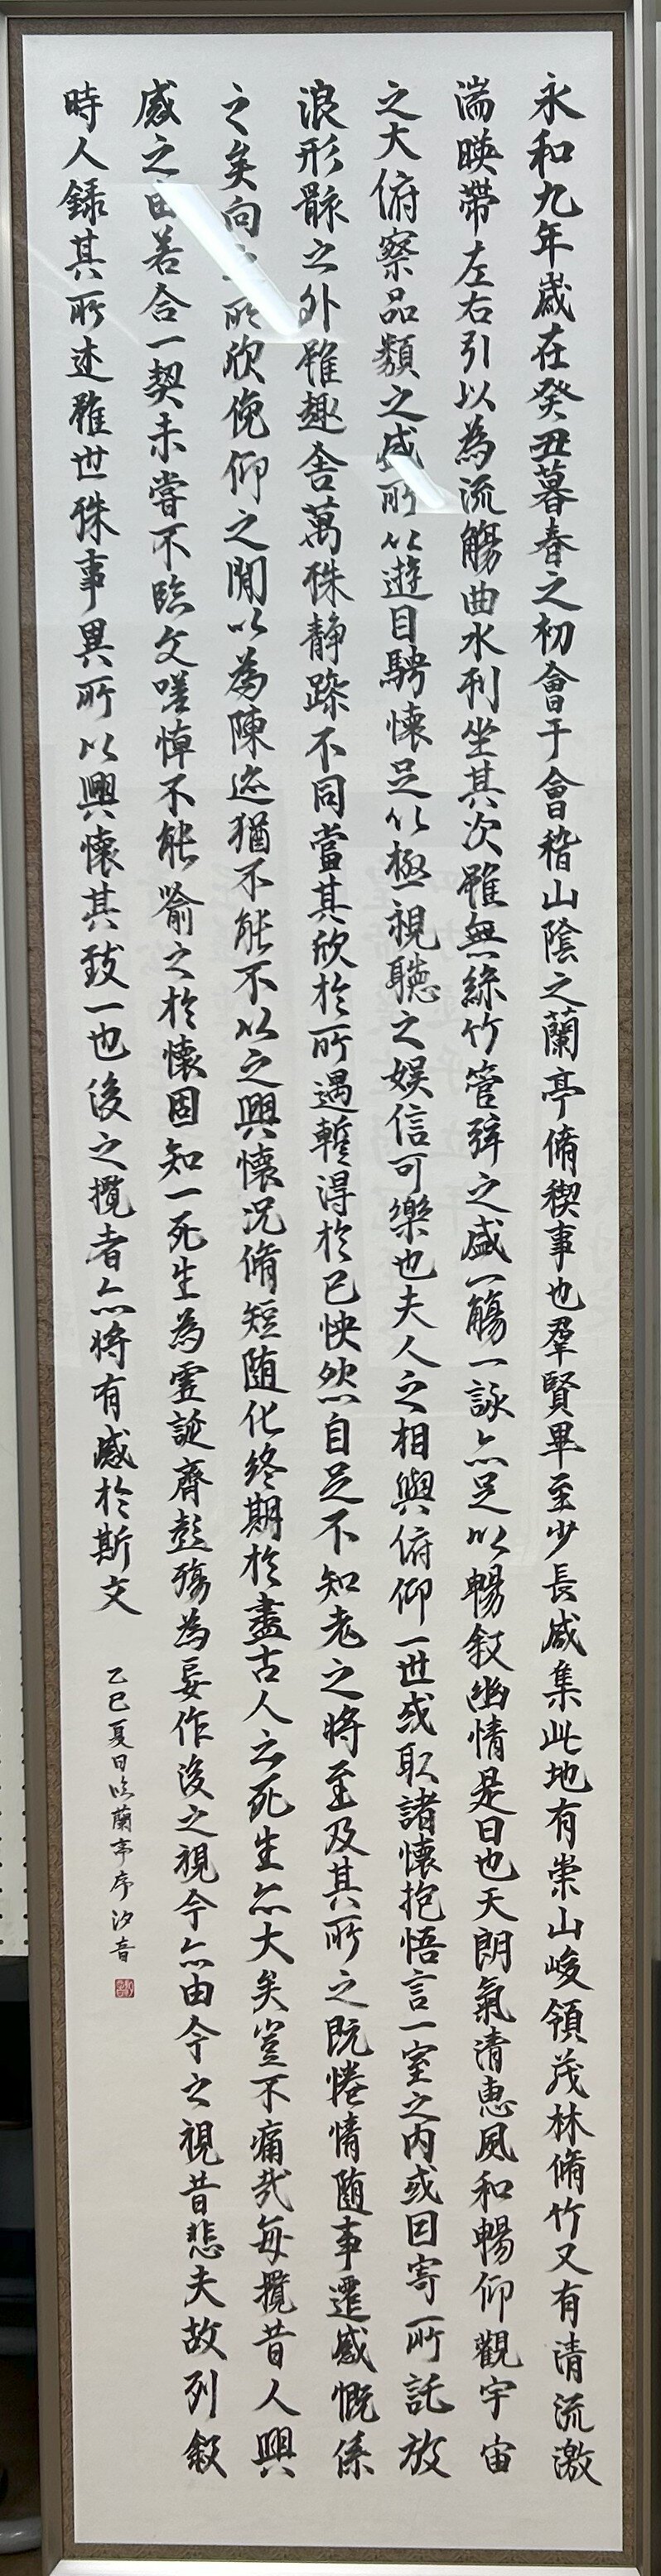 永和九年歲在癸丑暮春之初會于會稽山陰之蘭亭脩稧事也羣賢畢至少長咸集此地有崇山峻領茂林脩竹又有清流激
湍暎帶左右引以為流觴曲水列坐其次雖無絲竹管弦之盛一觴一詠亦足以暢敘幽情是日也天朗氣清惠風和暢仰觀宇宙
之大俯察品類之盛所以遊目騁懷足以極視聽之娛信可樂也夫人之相與俯仰一世或取諸懷抱悟言一室之內或因寄所託放
浪形骸之外雖趣舍萬殊靜躁不同當其欣於所遇暫得於己怏然自足不知老之將至及其所之既惓情隨事遷感慨係
之矣向之所欣俛仰之閒以為陳迹猶不能不以之興懷況脩短隨化終期於盡古人云死生亦大矣豈不痛哉每攬昔人興
感之由若合一契未嘗不臨文嗟悼不能喻之於懷固知一死生為虛誕齊彭殤為妄作後之視今亦由今之視昔悲夫故列敘
時人錄其所述雖世殊事異所以興懷其致一也後之攬者亦將有感於斯文
乙巳夏日臨蘭亭序 汐音